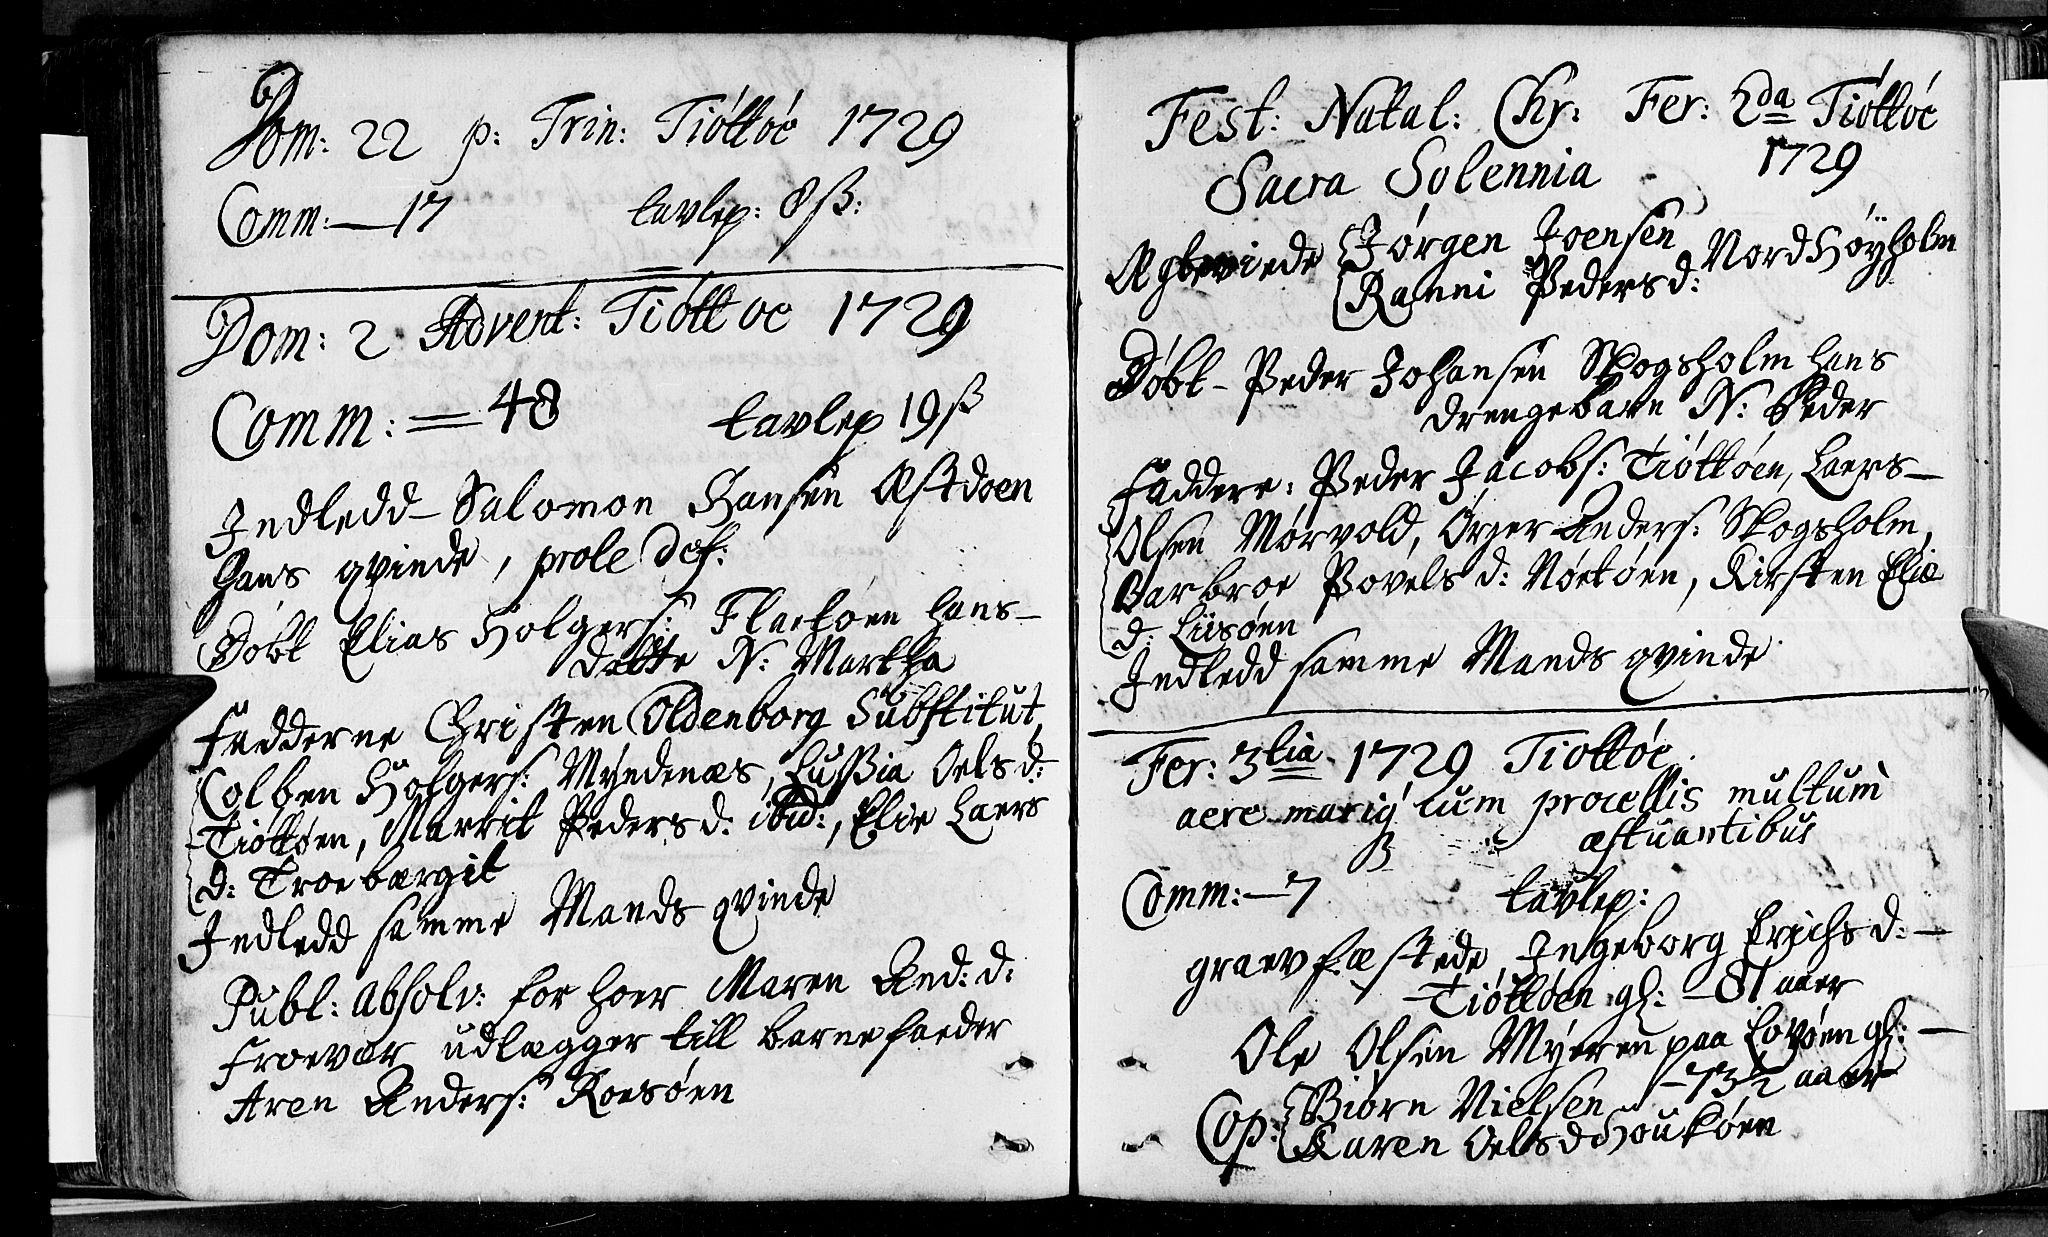 Dom: 22 p: Trin: Tiøttøe 1729
Comm: — 17 tavlep: 8 ß:
Dom: 2 Advent: Tiøttøe 1729
Comm: = 48 tavlep 19 ß
Indledd – Salomon Hansen
hans qvinde, prole def:
Døbt Elias Holgers: Flaetøen hans –
datte N: Martha
Fadderne Christen Oldenborg Substitut,
Colben Holgers: Myndenæs, Lussia Oels d:
Tiøttøen, Marrit Peders d: ibid:, Elie Laers
d: Troebærgit
Indledd samme Mands qvinde
Publ: absolv: for hoer Maren And: d:
Froevær udlægger till barnefaeder
Aren Anders: Roesøen
Fest: Natal: Chr: Fer: 2da Tiøttøe
Sacra Solennia 1729
Ægteviede Jørgen Joensen
Ranni Peders d: Nord Høyholm
Døbt – Peder Johansen Skogsholm hans
drengebarn N: Peder
Faddere: Peder Jacobs: Tiøttøen, Laers –
Olsen Mørvold, Ørger Anders: Skogsholm,
Barbroe Povels d: Nøetøen, Kirsten Eliæ
d: Liisøen
Indledd samme Mands qvinde
Fer: 3tia 1729 Tiøttøe
aere mariq cum procellis multum
æstuantibus
Comm: – 7 tavlep:
graevfæstede Ingeborg Erichs d: –
Tiøttøen gl: – 81 aaer
Ole Olsen Myeren paa Lovøen gl: –
– 73½ aaer
Cop: Biørn Nielsen
Karen Oels d Houkøen